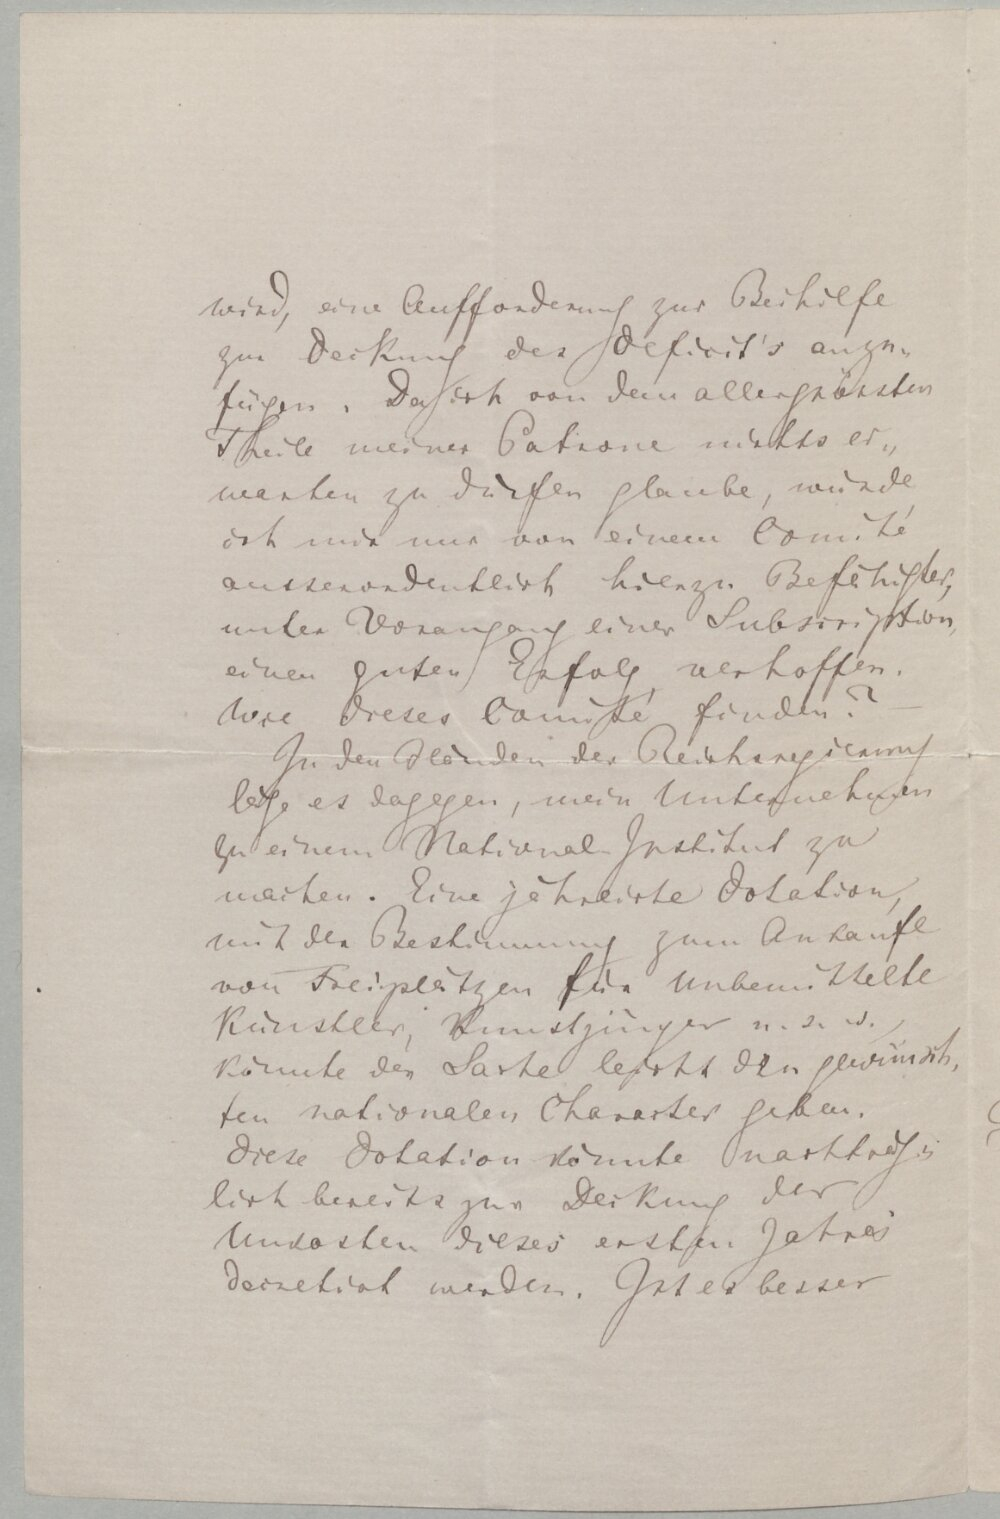 wird, eine Aufforderung zur Beihilfe
zur Deckung des Deficit's anzu„
fügen. Da ich von dem allergrössten
Theile meiner Patrone nichts er„
warten zu dürfen glaube, würde
ich mir nur von einem Comité
ausserordentlich hierzu Befähigter,
unter Vorangang einer Subscription,
einen guten Erfolg verhoffen.
Wie dieses Comité finden? —
In den Händen der Reichsregierung
läge es dagegen, mein Unternehmen
zu einem National-Institut zu
machen. Eine jährliche Dotation,
mit der Bestimmung zum Ankaufe
von Freiplätzen für unbemittelte
Künstler, Kunstjünger u. s. w.,
könnte der Sache leicht den gewünsch„
ten nationalen Character geben.
Diese Dotation könnte nachträg„
lich bereits zur Deckung der
Unkosten dieses ersten Jahres
decretirt werden. Ist es besser